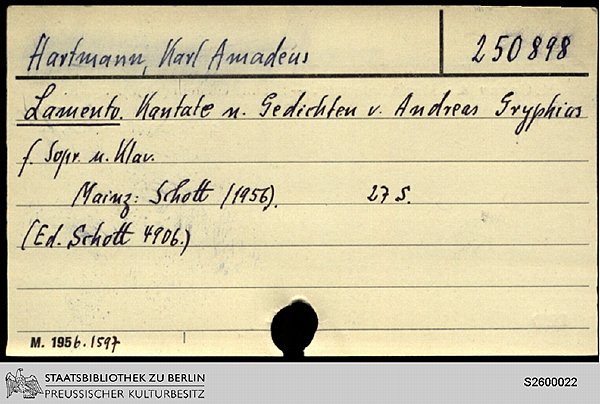 Hartmann, Karl Amadeus
250898
Lamento. Kantate n. Gedichten v. Andreas Gryphius
f. Sopr. u. Klav.
Mainz: Schott (1956). 27 S.
(Ed. Schott 4906.)
M. 1956.1597
STAATSBIBLIOTHEK ZU BERLIN
PREUSSISCHER KULTURBESITZ
S2600022